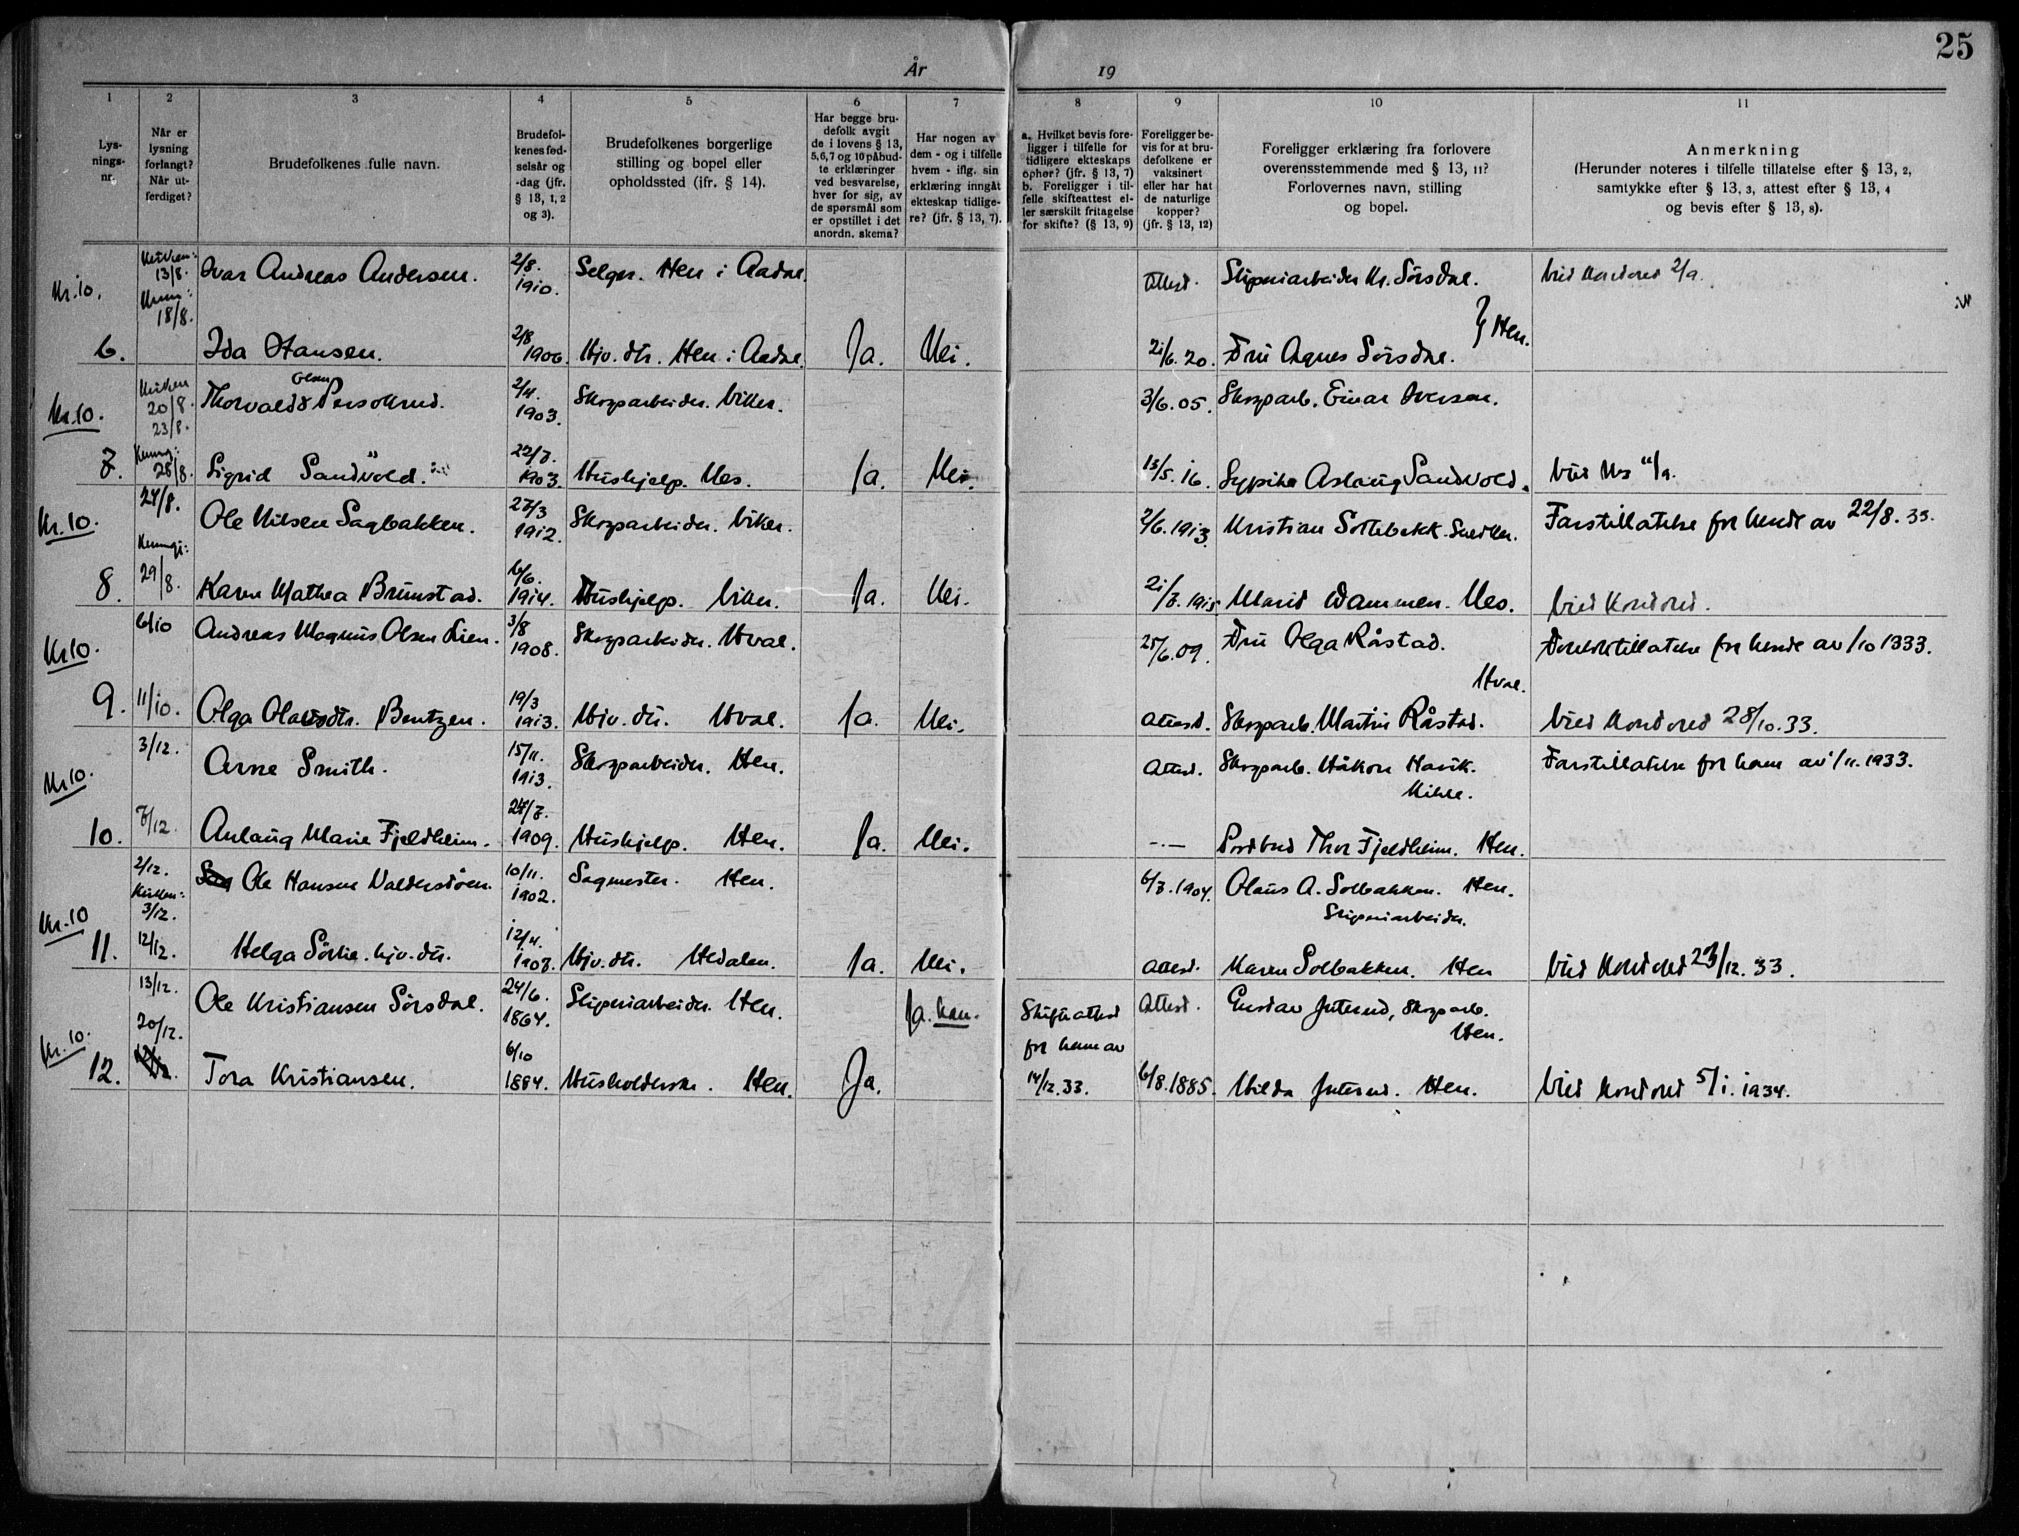 25
År 19
1 2 3 4 5 6 7 8 9 10 11
Lys-
nings-
nr.
Når er
lysning
forlangt?
Når ut-
ferdiget?
Brudefolkenes fulle navn.
Brudefol-
kenes fød-
selsår og
-dag (jfr.
§ 13, 1, 2
og 3).
Brudefolkenes borgerlige
stilling og bopel eller
opholdssted (jfr. § 14).
Har begge bru-
defolk avgit
de i lovens § 13,
5, 6, 7 og 10 påbud-
te erklæringer
ved besvarelse,
hver for sig, av
de spørsmål som
er opstillet i det
anordn. skema?
Har nogen av
dem - og i tilfelle
hvem - iflg. sin
erklæring inngåt
ekteskap tidlige-
re? (jfr. § 13, 7).
a. Hvilket bevis fore-
ligger i tilfelle for
tidligere ekteskaps
ophør? (jfr. § 13, 7)
b. Foreligger i til-
felle skifteattest el-
ler særskilt fritagelse
for skifte? (§ 13, 9)
Foreligger be-
vis for at bru-
defolkene er
vaksinert
eller har hat
de naturlige
kopper?
(jfr. § 13, 12)
Foreligger erklæring fra forlovere
overensstemmende med § 13, 11?
Forlovernes navn, stilling
og bopel.
Anmerkning
(Herunder noteres i tilfelle tillatelse efter § 13, 2,
samtykke efter § 13, 3, attest efter § 13, 4
og bevis efter § 13, 8).
Kr. 10.
13/8.
18/8.
Ivar Andreas Andersen.
2/8.
1910.
Selger. Hen i Aadal
Attest.
Sliperiarbeider Kr. Sörsdal.
Viet Nordered 2/9.
6.
Ida Hansen.
2/8
1906.
Hjv. dtr. Hen i Aadal.
Ja.
Nei.
21/6. 20.
Fru Agnes Sörsdal.
} Hen.
Kr. 10.
Kirken
20/8.
23/8.
Olsen
Thorvald Persokrud.
2/4.
1903.
Skogarbeider. Viker.
3/6. 05.
Skogarb. Einar Iversen.
7.
28/8.
Sigrid Sandvold.
22/7.
1903.
Hushjelp. Nes.
Ja.
Nei.
13/5. 16.
Sypike Aslaug Sandvold.
Viet Nes 11/9.
Kr. 10.
24/8.
Ole Nilsen Sagbakken.
27/3
1912.
Skogarbeider. Viker.
2/6. 1913.
Kristian Sollebekk.
Farstillatelse for hende av 22/8. 33.
8.
29/8.
Karen Mathea Brunstad.
6/6.
1914.
Hushjelp. Viker.
Ja.
Nei.
21/7. 1915
Marit Dammen. Nes.
Viet Nordered.
Kr 10.
6/10
Andreas Magnus Olsen Lien.
3/8
1908.
Skogarbeider. Hval.
25/6. 09.
Fru Olga Råstad.
Hval.
for hende av /10 1933.
9.
11/10.
Olga Olausdtr. Bentzen.
19/3
1913.
Hjv. dtr. Hval.
Ja.
Nei.
Attest.
Skogarb. Martin Råstad.
Viet Nordered 28/10. 33.
Kr 10.
3/12.
Arne Smith.
15/11.
1913.
Skogarbeider. Hen.
Attest.
Skogarb. Håkon Narik.
Farstillatelse for ham av 1/11. 1933.
10.
7/12.
Anlaug Marie Fjeldheim.
24/7.
1909.
Hushjelp. Hen.
Ja.
Nei.
-.-
Postbud Thor Fjeldheim. Hen.
Kr. 10
2/12.
Kirken:
3/12.
Ole Hansen Valdersdöen.
10/11.
1902.
Sagmester. Hen.
6/7. 1904.
Olaus A. Solbakken. Hen.
Sliperiarbeider.
11.
12/12.
Helga Sörlie. hjv. dtr.
12/4.
1903.
Hjv. dtr. Hedalen.
Ja.
Nei.
Attest.
Maren Solbakken. Hen
Viet Nordered 23/12. 33.
Kr. 10.
13/12.
20/12.
Ole Kristiansen Sörsdal.
24/6.
1864.
Sliperiarbeider. Hen.
Ja. han.
Skifteattest
for ham av
14/12. 33.
Attest.
Gustav Juterud, Skogarb.
Hen.
12.
Tora Kristiansen.
6/10
1884.
Husholderske. Hen.
Ja.
6/8. 1885.
Hilda Juterud. Hen.
Viet Nordered 5/1. 1934.